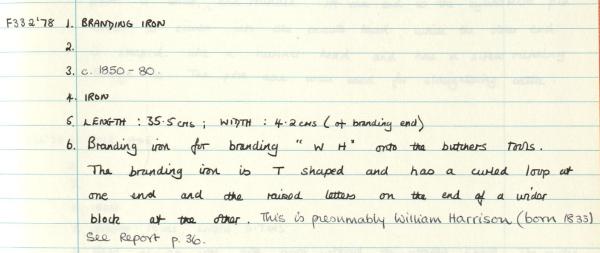 F332'78 1. BRANDING IRON
2.
3. c. 1850 - 80.
4. IRON
5. LENGTH : 35.5 cms ; WIDTH : 4.2 cms ( of branding end)
6. Branding iron for branding "W H" onto the butchers tools.
The branding iron is T shaped and has a curled loop at
one end and the raised letters on the end of a wider
block at the other. This is presumably William Harrison (born 1833)
See Report p. 36.